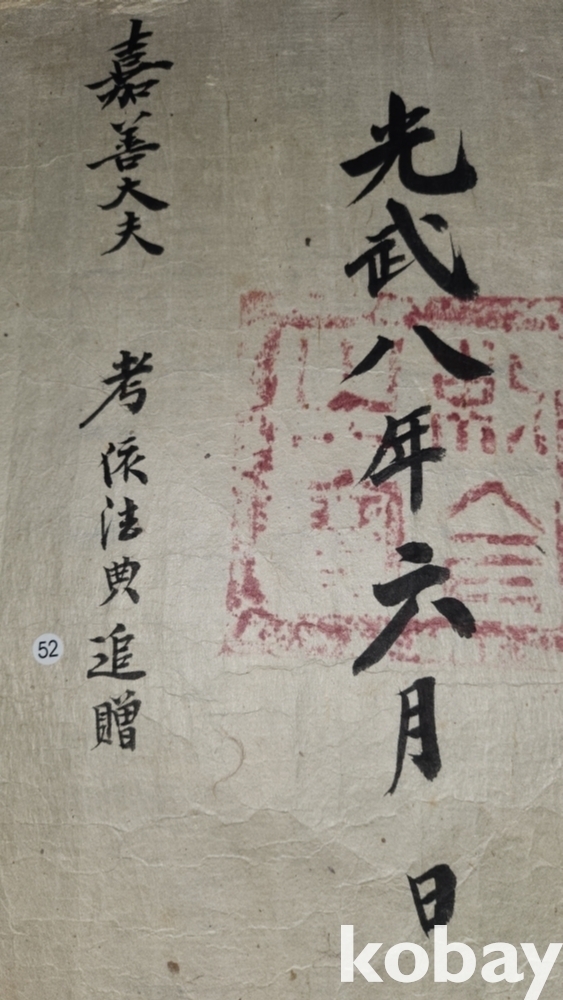 光武八年六月 日
嘉善大夫 考 依法典追贈
52
kobay